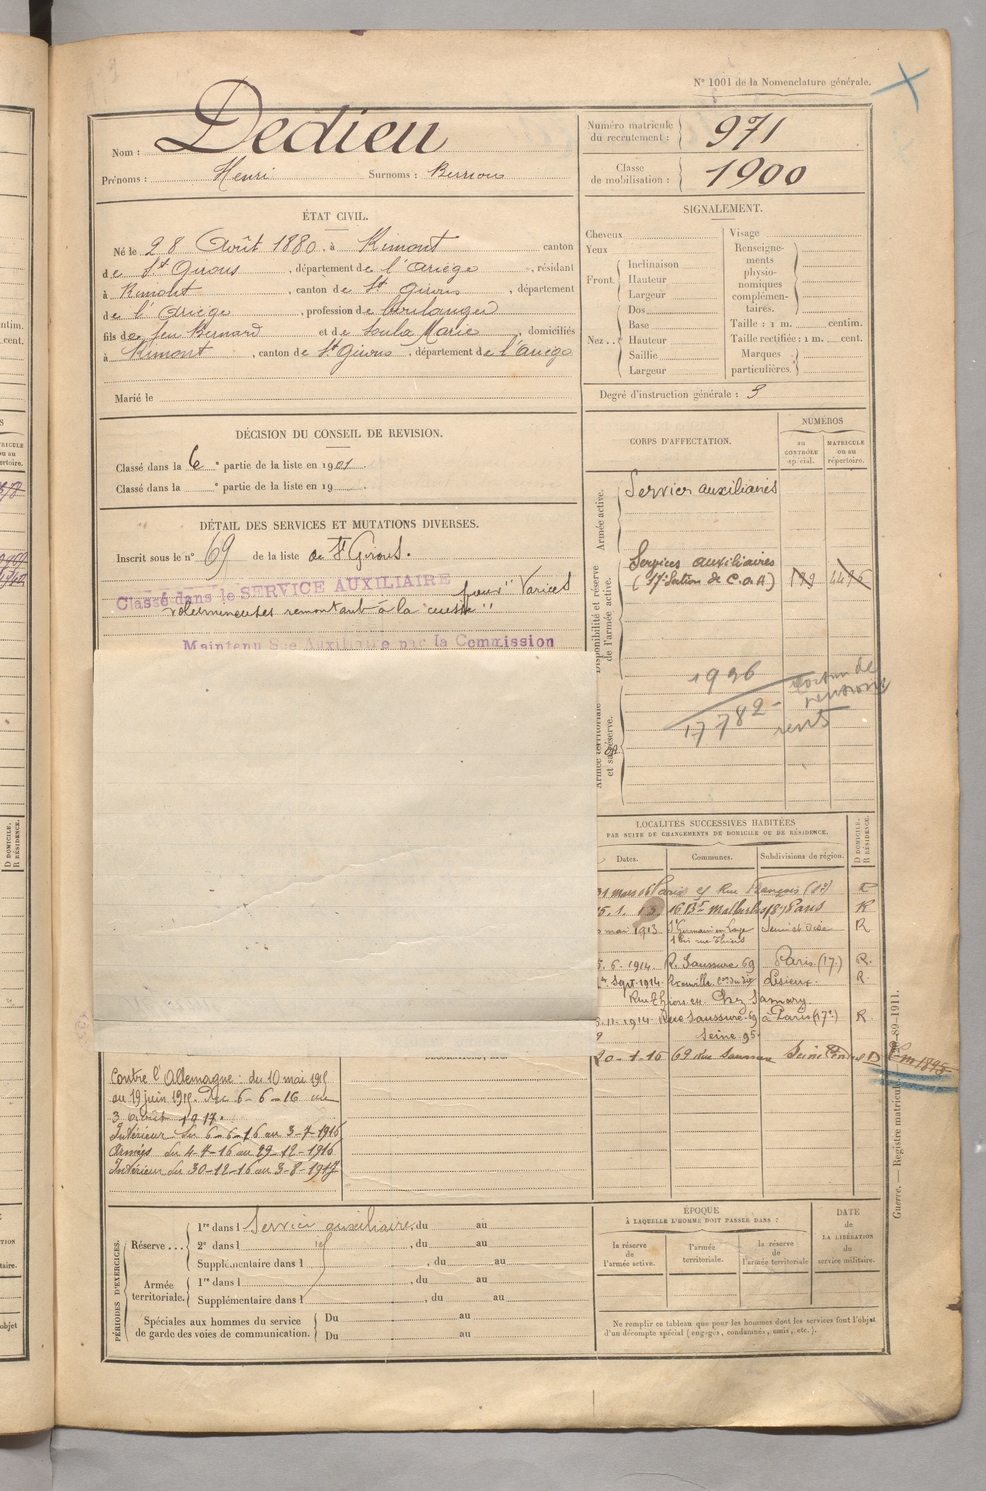 N° 1001 de la Nomenclature générale.
Nom : Dedieu
Prénoms : Henri Surnoms :
Numéro matricule du recrutement : 971
Classe de mobilisation : 1900
ÉTAT CIVIL.
Né le 28 Août 1880, à Rimont canton
de St Girons, département de l'Ariège, résidant
à Rimont, canton de St Girons, département
de l'Ariège, profession de boulanger
fils de feu Bernard et de Soula Marie, domiciliés
à Rimont, canton de St Girons, département de l'Ariège
Marié le
SIGNALEMENT.
Cheveux
Yeux
Front. Inclinaison
Hauteur
Largeur
Nez... Dos
Base
Hauteur
Saillie
Largeur
Visage
Renseignements physionomiques complémentaires.
Taille : 1 m. centim.
Taille rectifiée : 1 m. cent.
Marques particulières.
Degré d'instruction générale : 3
DÉCISION DU CONSEIL DE REVISION.
Classé dans la 6e partie de la liste en 1901.
Classé dans la e partie de la liste en 19
DÉTAIL DES SERVICES ET MUTATIONS DIVERSES.
Inscrit sous le n° 69 de la liste de St Girons.
Classé dans le SERVICE AUXILIAIRE pour "Varices
volumineuses remontant à la cuisse"
Maintenu Sce Auxiliaire par la Commission
CORPS D'AFFECTATION.
NUMÉROS
au CONTRÔLE spécial.
MATRICULE ou au répertoire.
Armée active.
Services auxiliaires
Disponibilité et réserve de l'armée active.
Services auxiliaires
(Section de C.O.A)
Armée territoriale et sa réserve.
1926
17782
LOCALITÉS SUCCESSIVES HABITÉES
PAR SUITE DE CHANGEMENTS DE DOMICILE OU DE RÉSIDENCE.
Dates. Communes. Subdivisions de région. D DOMICILE. R RÉSIDENCE.
31 mars Paris Rue François
1. 13 16 Bd Malesherbes Paris R
mai 1913 St Germain en Laye Seine et Oise R
rue Thiers
6. 1914 R. Saussure 69 Paris (17) R.
Sept. 1914 Trouville Lisieux. R
Rue Thiers chez
11-1914 Rue Saussure 69 à Paris (17e) R
Seine
20-1-16 69 rue Saussure Seine D
Contre l'Allemagne : du 10 mai 1915
au 19 juin 1915. Du 6-6-16 au
3 août 1917.
Intérieur du 6-6-16 au 3-7-1916
Armées du 4-7-16 au 29-12-1916
Intérieur du 30-12-16 au 3-8-1917
PÉRIODES D'EXERCICES.
Réserve... 1re dans l Service auxiliaire, du au
2e dans l, du au
Supplémentaire dans l, du au
Armée territoriale. 1re dans l, du au
Supplémentaire dans l, du au
Spéciales aux hommes du service de garde des voies de communication. Du au
Du au
ÉPOQUE
À LAQUELLE L'HOMME DOIT PASSER DANS :
la réserve de l'armée active.
l'armée territoriale.
la réserve de l'armée territoriale
DATE de LA LIBÉRATION du service militaire.
Ne remplir ce tableau que pour les hommes dont les services font l'objet
d'un décompte spécial (engagés, condamnés, omis, etc.).
Guerre. — Registre matricule 89-1911.